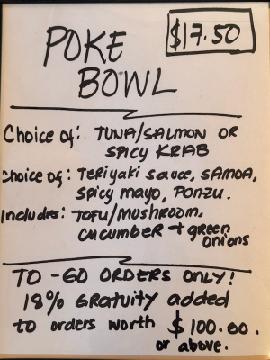 POKE
BOWL
$17.50
Choice of: TUNA/SALMON OR
SPICY KRAB
Choice of: TERiyaki sauce, SAMBA,
spicy mayo, PONZU.
Includes: TOFU/MUSHROOM,
CUCUMBER + green
onions
TO-GO ORDERS ONLY!
18% Gratuity added
to orders worth $100.00.
or above.